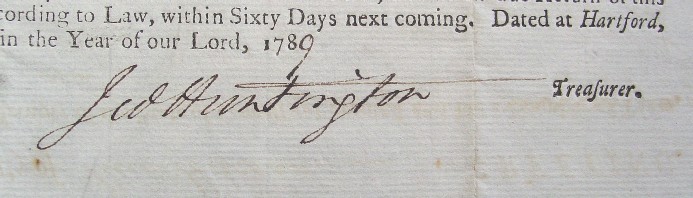 cording to Law, within Sixty Days next coming. Dated at Hartford,
in the Year of our Lord, 1789
Jed Huntington Treaſurer.